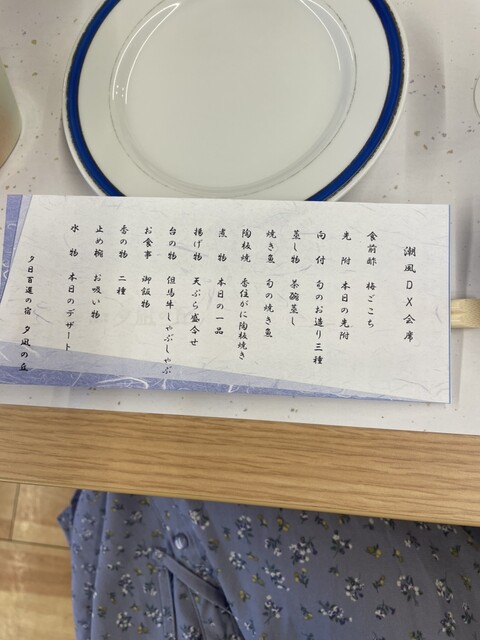 潮風DX会席
食前酢 梅ごこち
先附 本日の先附
向付 旬のお造り三種
蒸し物 茶碗蒸し
焼き魚 旬の焼き魚
陶板焼 香住がに陶板焼き
煮物 本日の一品
揚げ物 天ぷら盛合せ
台の物 但馬牛しゃぶしゃぶ
お食事 御飯物
香の物 二種
止め椀 お吸い物
水物 本日のデザート
夕日百選の宿 夕凪の丘